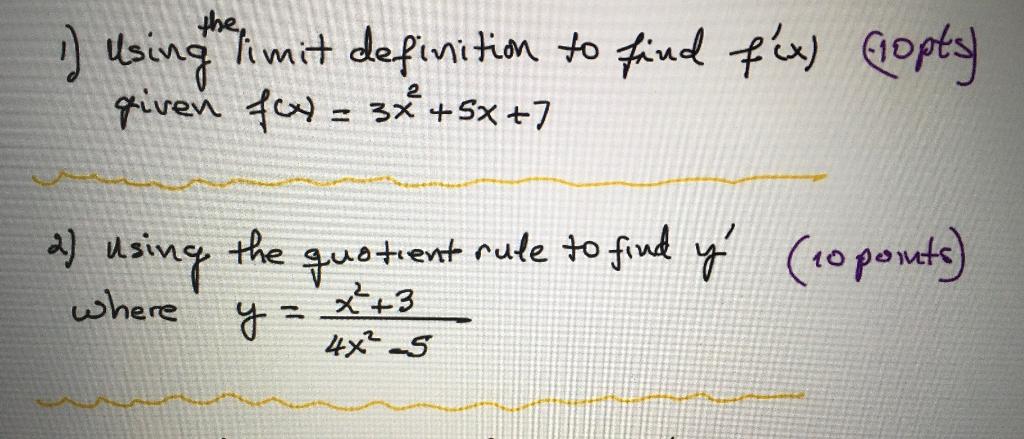 1) Using the limit definition to find f'(x) (10pts)
given f(x) = 3x² + 5x + 7
2) using the quotient rule to find y' (10 points)
where y = x²+3
4x² - 5